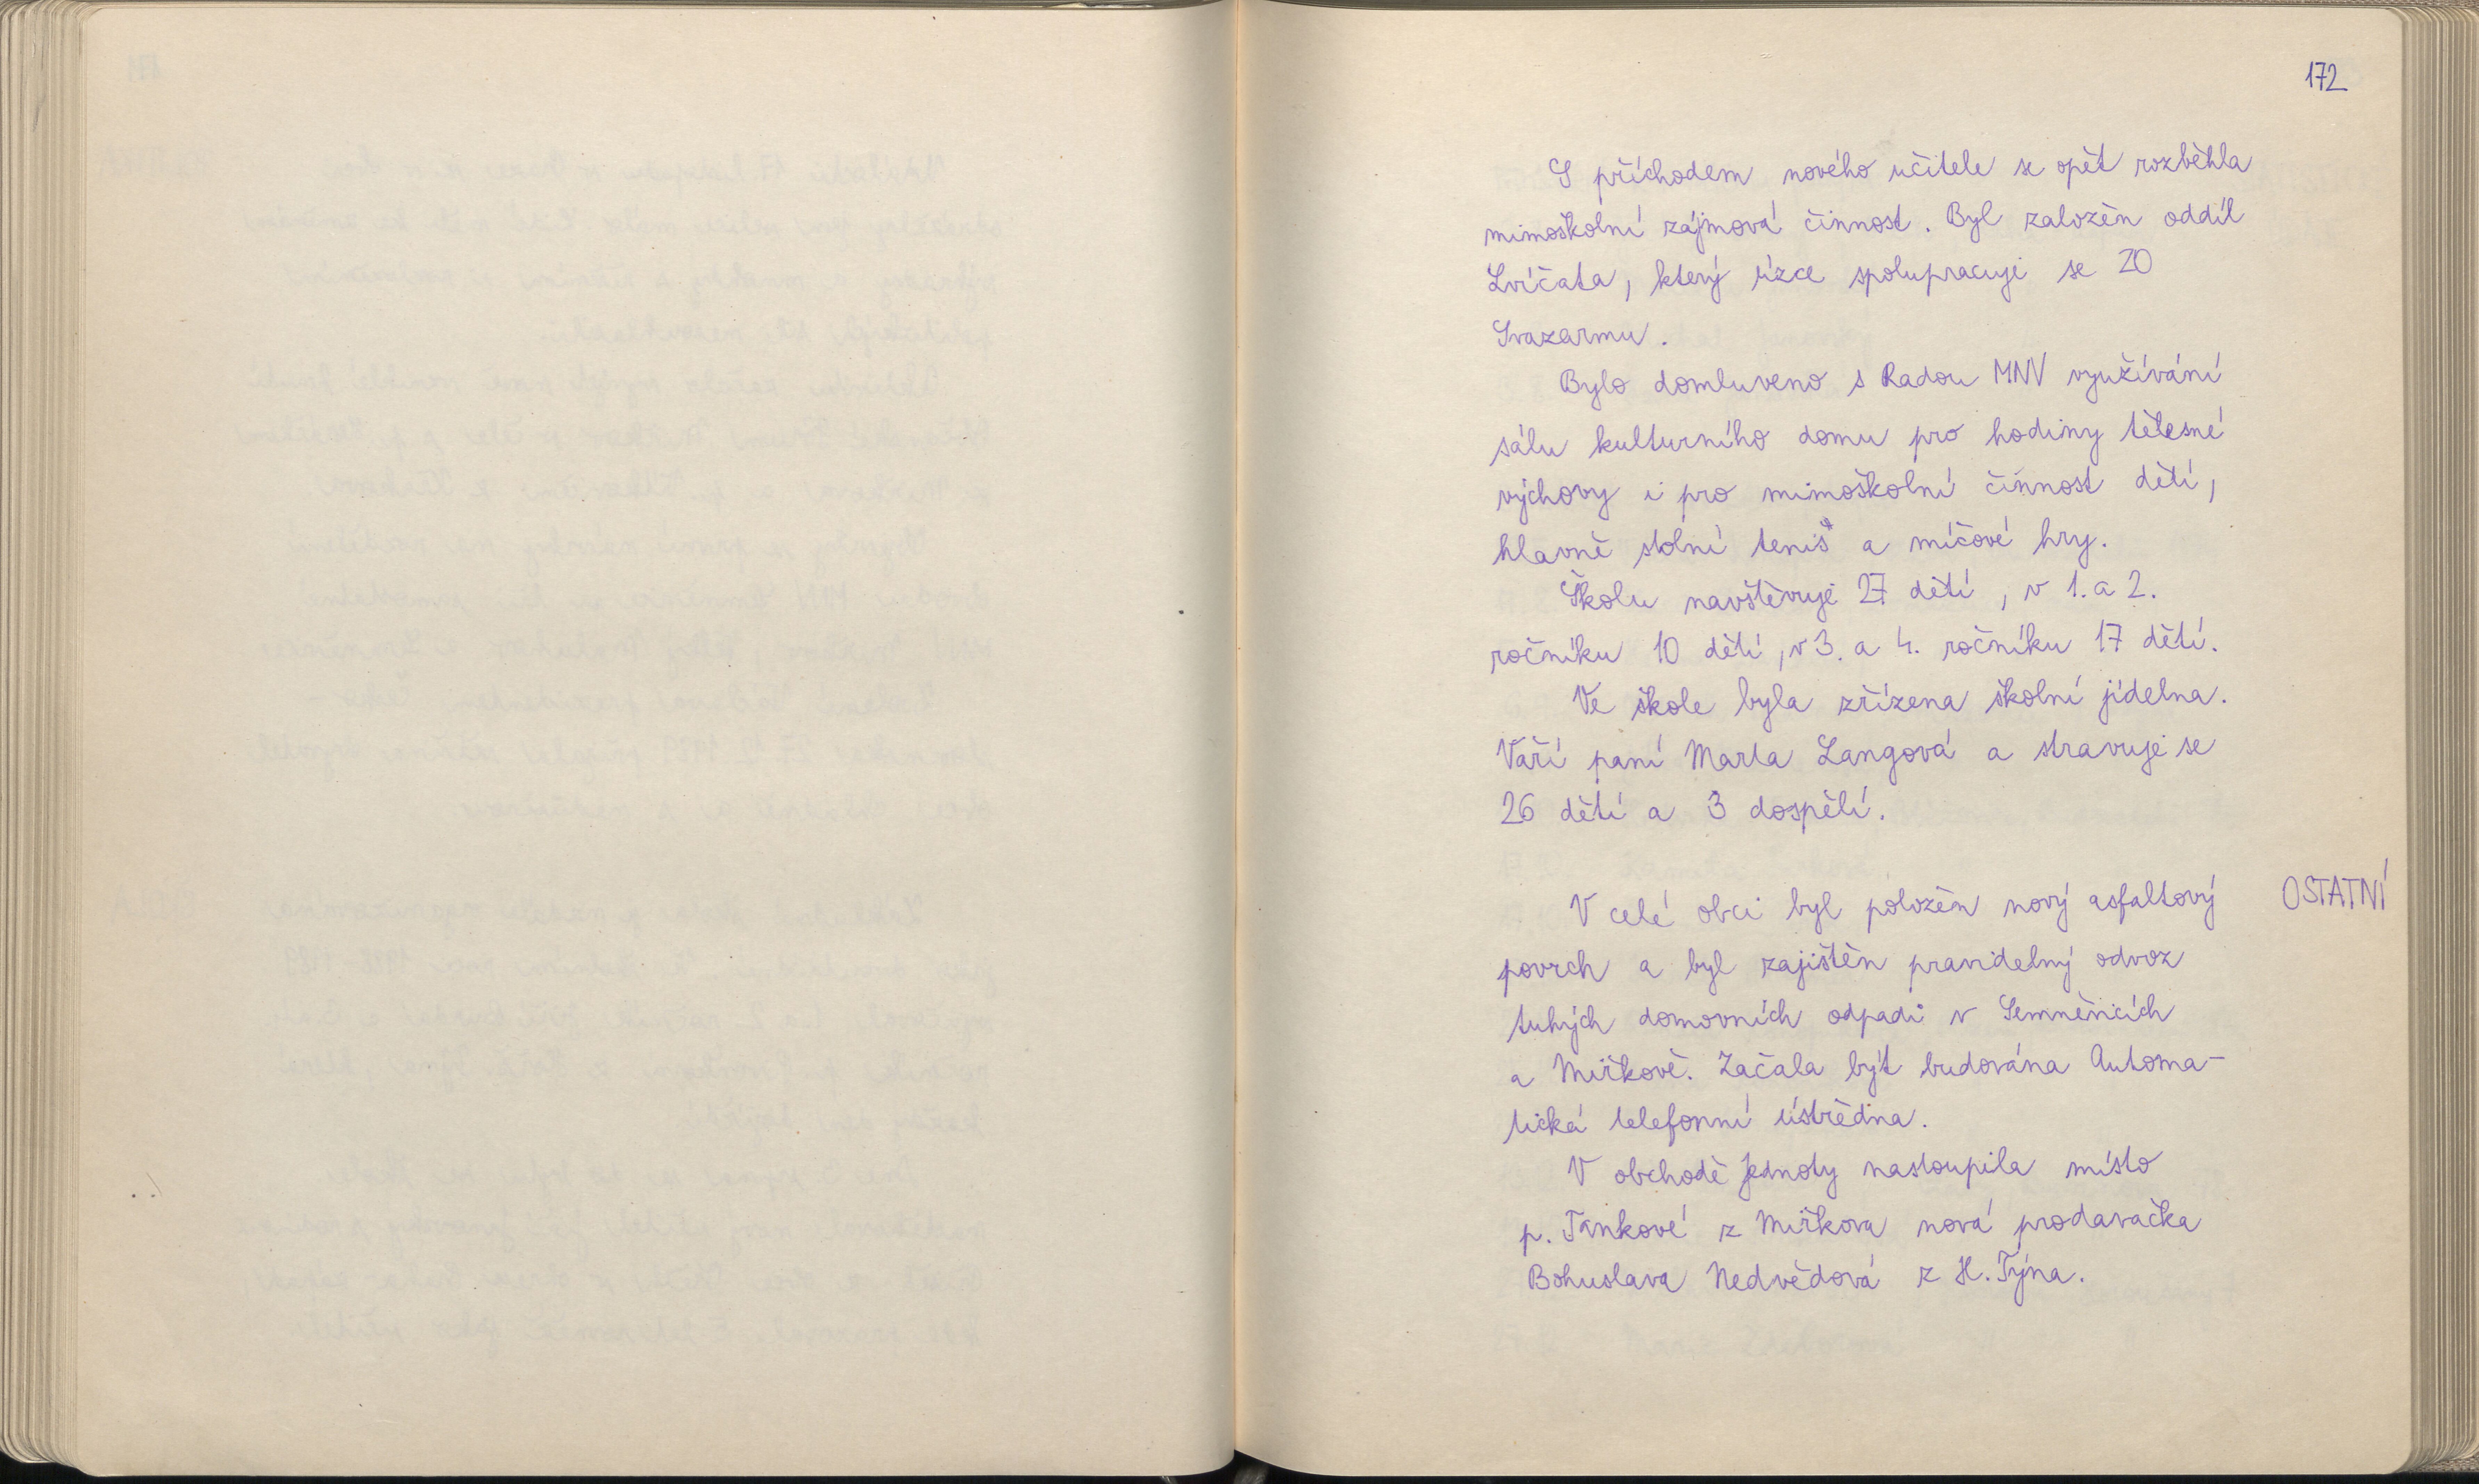 172
S příchodem nového učitele se opět rozběhla
mimoškolní zájmová činnost. Byl založen oddíl
Lvíčata, který úzce spolupracuje se ZO
Svazarmu.
Bylo domluveno s Radou MNV využívání
sálu kulturního domu pro hodiny tělesné
výchovy i pro mimoškolní činnost dětí,
hlavně stolní tenis a míčové hry.
Školu navštěvuje 27 dětí, v 1. a 2.
ročníku 10 dětí, v 3. a 4. ročníku 17 dětí.
Ve škole byla zřízena školní jídelna.
Vaří paní Marta Langová a stravuje se
26 dětí a 3 dospělí.
V celé obci byl položen nový asfaltový
OSTATNÍ
povrch a byl zajištěn pravidelný odvoz
tuhých domovních odpadů v Semněvicích
a Mířkově. Začala být budována Automa-
tická telefonní ústředna.
V obchodě Jednoty nastoupila místo
p. Tankové z Mířkova nová prodavačka
Bohuslava Nedvědová z H. Týna.